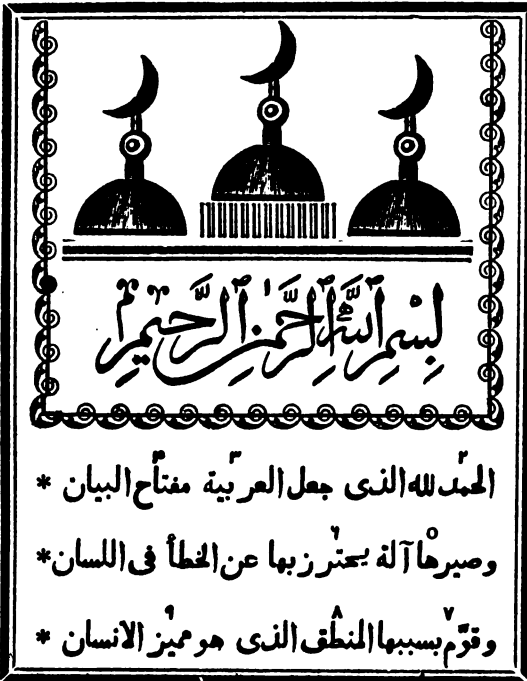 بِسْمِ اللَّهِ الرَّحْمٰنِ الرَّحِيمِ
الحمد لله الذى جعل العربية مفتاح البيان *
وصيرها آلة يحترز بها عن الخطأ فى اللسان *
وقوّم بسببها المنطق الذى هو مميز الانسان *